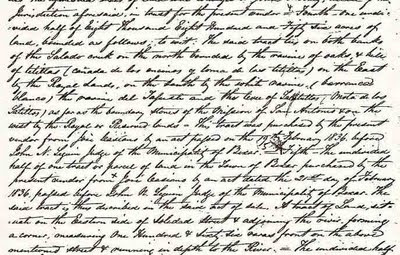 Jurisdiction aforesaid, in trust for the present vendor &
vided half of Eight Thousand Eight Hundred and Fifty six acres of
land, bounded as follows, to wit. The said tract lies on both banks
of the Salado creek on the north bounded by the ravine of oaks & hill
of tetillas (cañada de los encinos y loma de las tetillas) on the East
by the Royal Lands, on the South by the white ravine, (barranco
blanco) the ravine del
as far as the boundary stones of the Mission of San
west by the Royal or Redeemed lands = This tract was purchased by the present
vendor from by an act passed on the February 1834 before
John N. judge of the Municipality of Bexar. = Fifth. The undivided
half of a tract or parcel of land in the Town of Bexar purchased by the
present vendor from by an act dated the 21st day of February
1834 passed before John N. judge of the Municipality of Bexar. The
said tract is thus described in the said act of sale. A tract of land sit-
uate on the Eastern side of Soledad Street & adjoining the river, forming
a corner, measuring One Hundred & Sixty six varas front on the above
mentioned street & running in depth to the River. = The undivided half